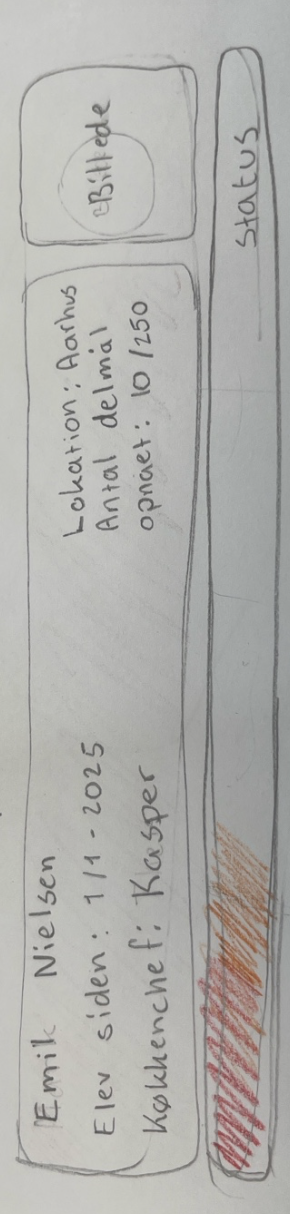 Emil Nielsen
Elev siden: 1/1-2025
Køkkenchef: Kasper
Lokation: Aarhus
Antal delmål
opnået: 10/250
Billede
Status